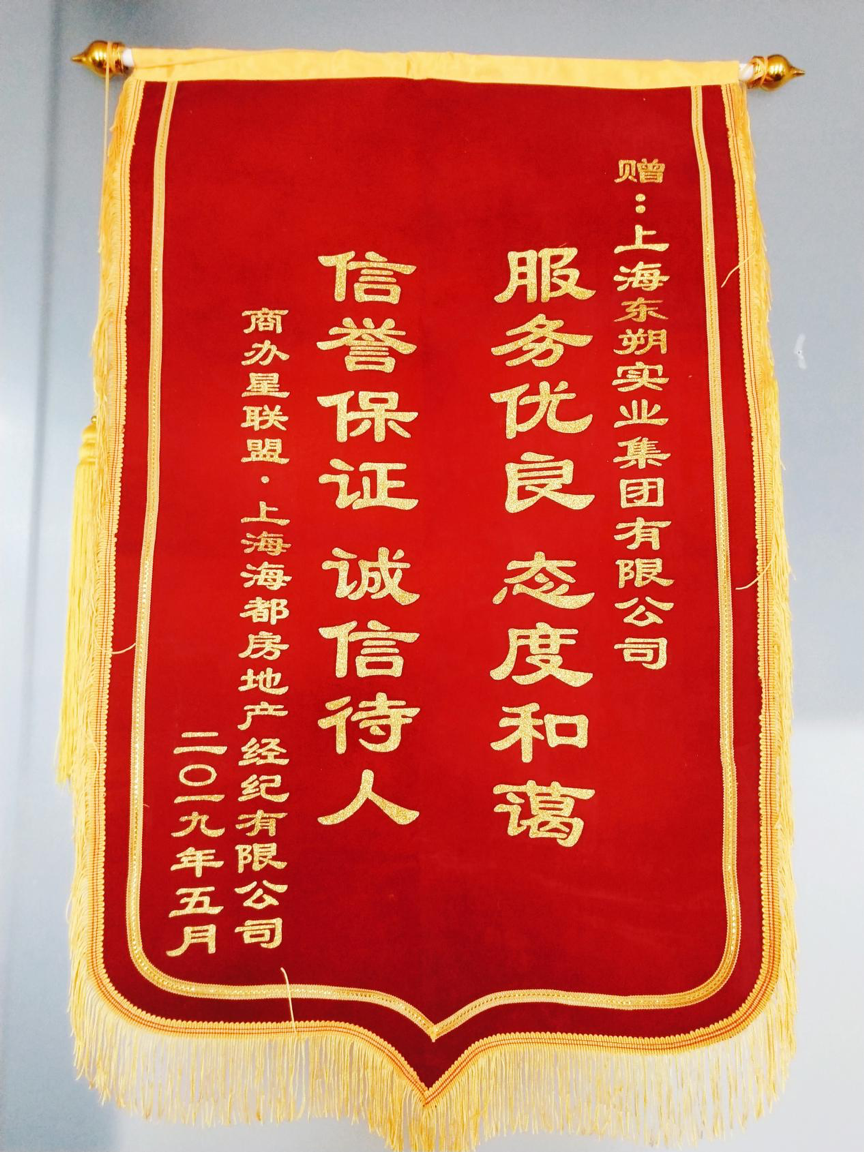 赠：上海东朔实业集团有限公司
服务优良 态度和蔼
信誉保证 诚信待人
商办星联盟·上海海都房地产经纪有限公司
二〇一九年五月